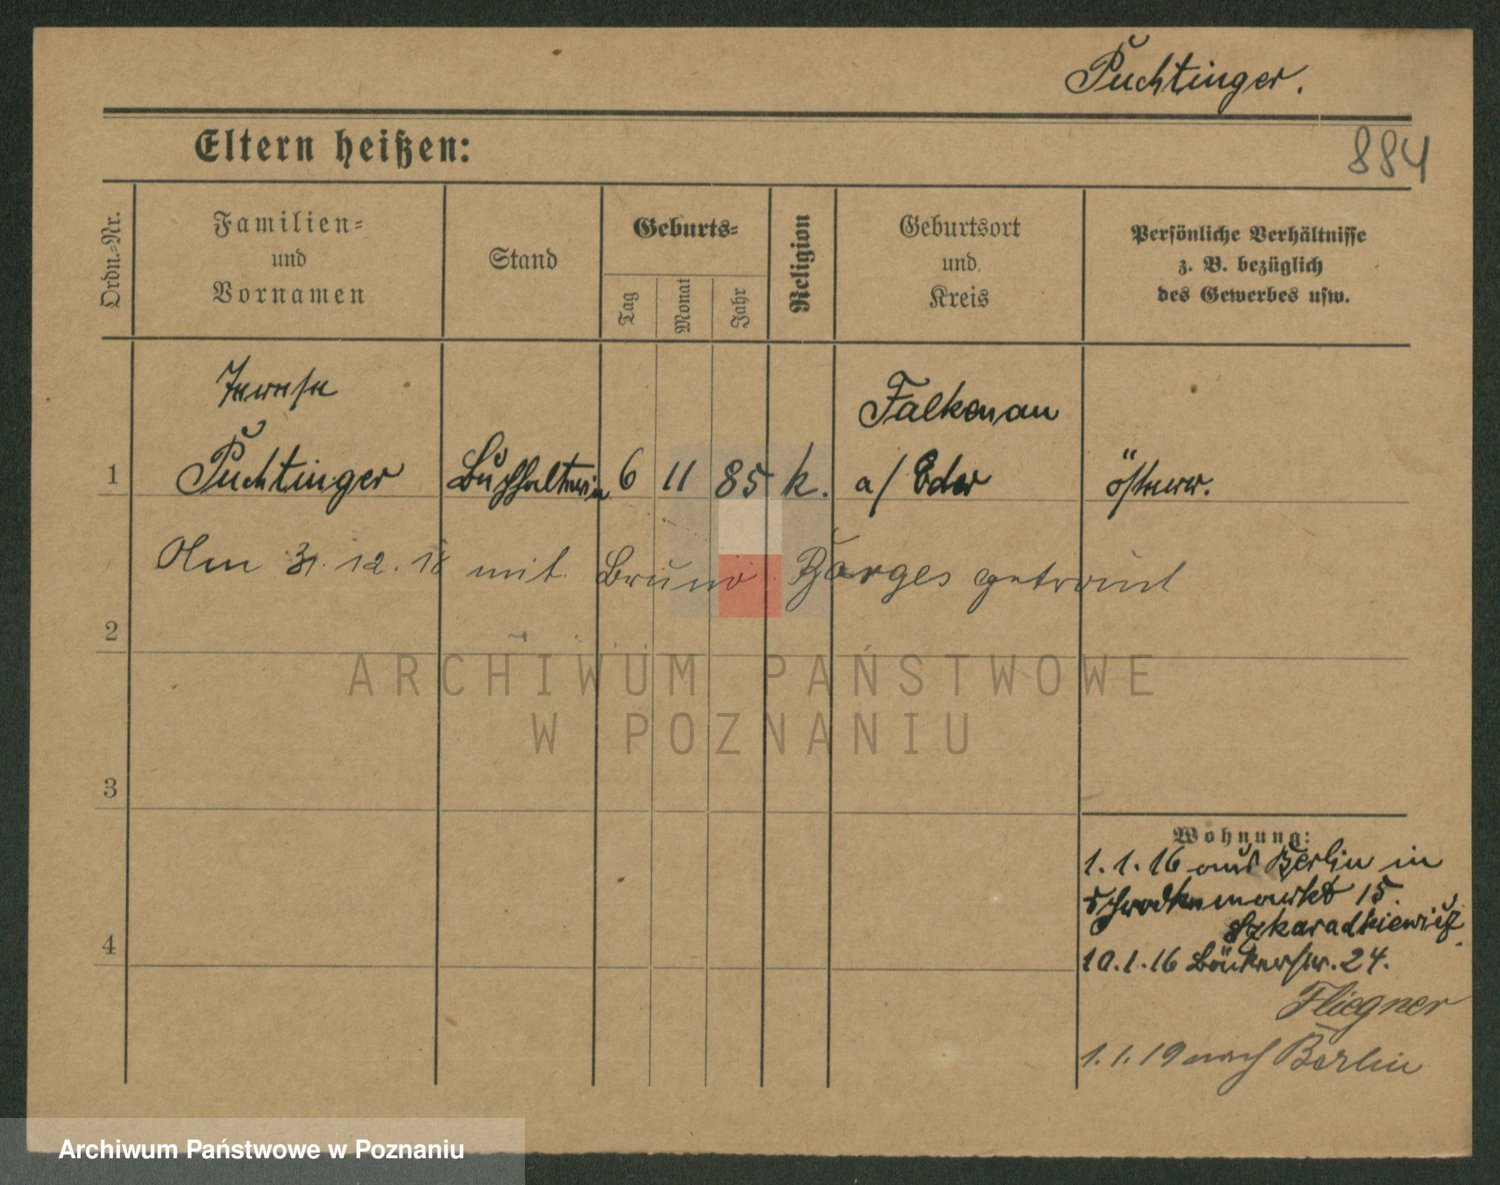 Puchtinger.
Eltern heißen:
884
Ordn.-Nr.
Familien-
und
Vornamen
Stand
Geburts-
Tag
Monat
Jahr
Religion
Geburtsort
und
Kreis
Persönliche Verhältnisse
z. B. bezüglich
des Gewerbes usw.
Therese
Falkenau
1 Puchtinger Buchhalterin 6 11 85 k. a/ Eder österr.
Am 31.12.18 mit Bruno getraut
2
ARCHIWUM PAŃSTWOWE
W POZNANIU
3
Wohnung:
1.1.16 aus Berlin in
Schrodkamarkt 15.
Szkaradkiewicz
4
10.1.16 Bäckerstr. 24.
Fliegner
1.1.19 nach Berlin
Archiwum Państwowe w Poznaniu